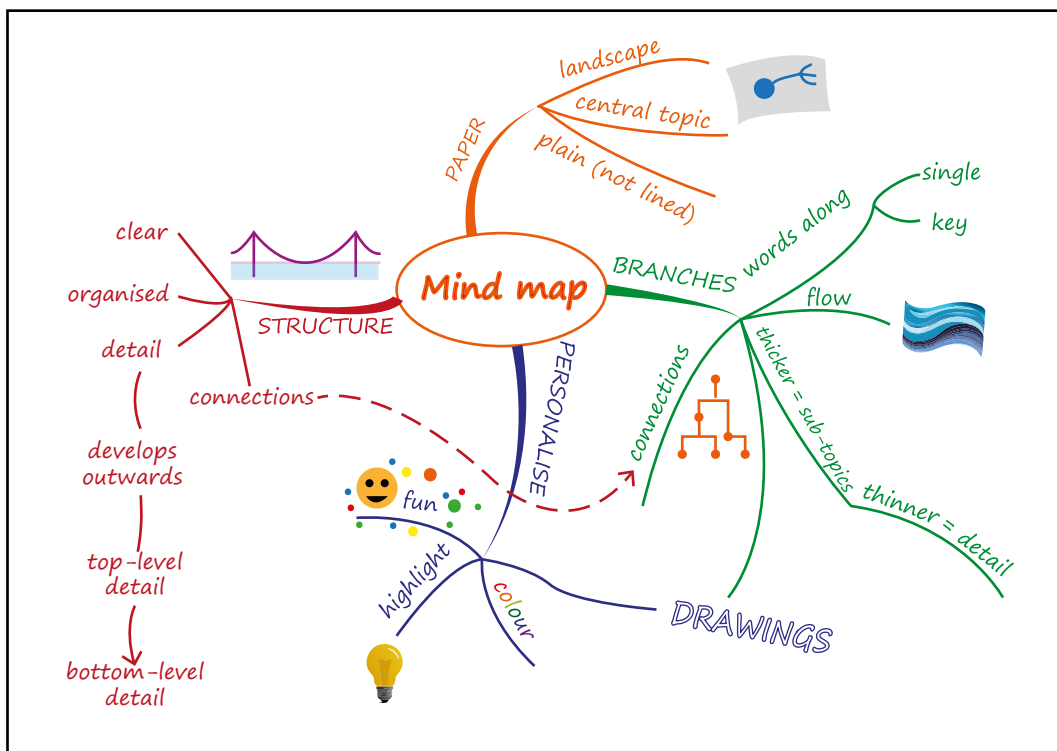 Mind map
PAPER
landscape
central topic
plain (not lined)
BRANCHES
words along
single
key
flow
thicker = sub-topics
thinner = detail
connections
PERSONALISE
fun
highlight
colour
DRAWINGS
STRUCTURE
clear
organised
detail
develops
outwards
top-level
detail
bottom-level
detail
connections